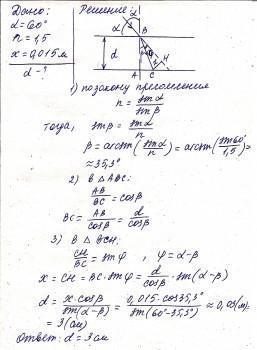 Дано:
α=60°
n=1,5
x=0,015м
d-?
Решение:
α
α
B
β φ
H
d
A C
1) по закону преломления
n = sinα/sinβ
тогда, sinβ = sinα/n
β = arcsin(sinα/n) = arcsin(sin60°/1,5) =
≈35,3°
2) в △ABC:
AB/BC = cosβ
BC = AB/cosβ = d/cosβ
3) В △BCH:
CH/BC = sinφ , φ=α-β
x = CH = BC·sinφ = d/cosβ · sin(α-β)
d = x·cosβ/sin(α-β) = 0,015·cos35,3°/sin(60°-35,3°) ≈ 0,03(м)=
= 3(см)
Ответ: d = 3см